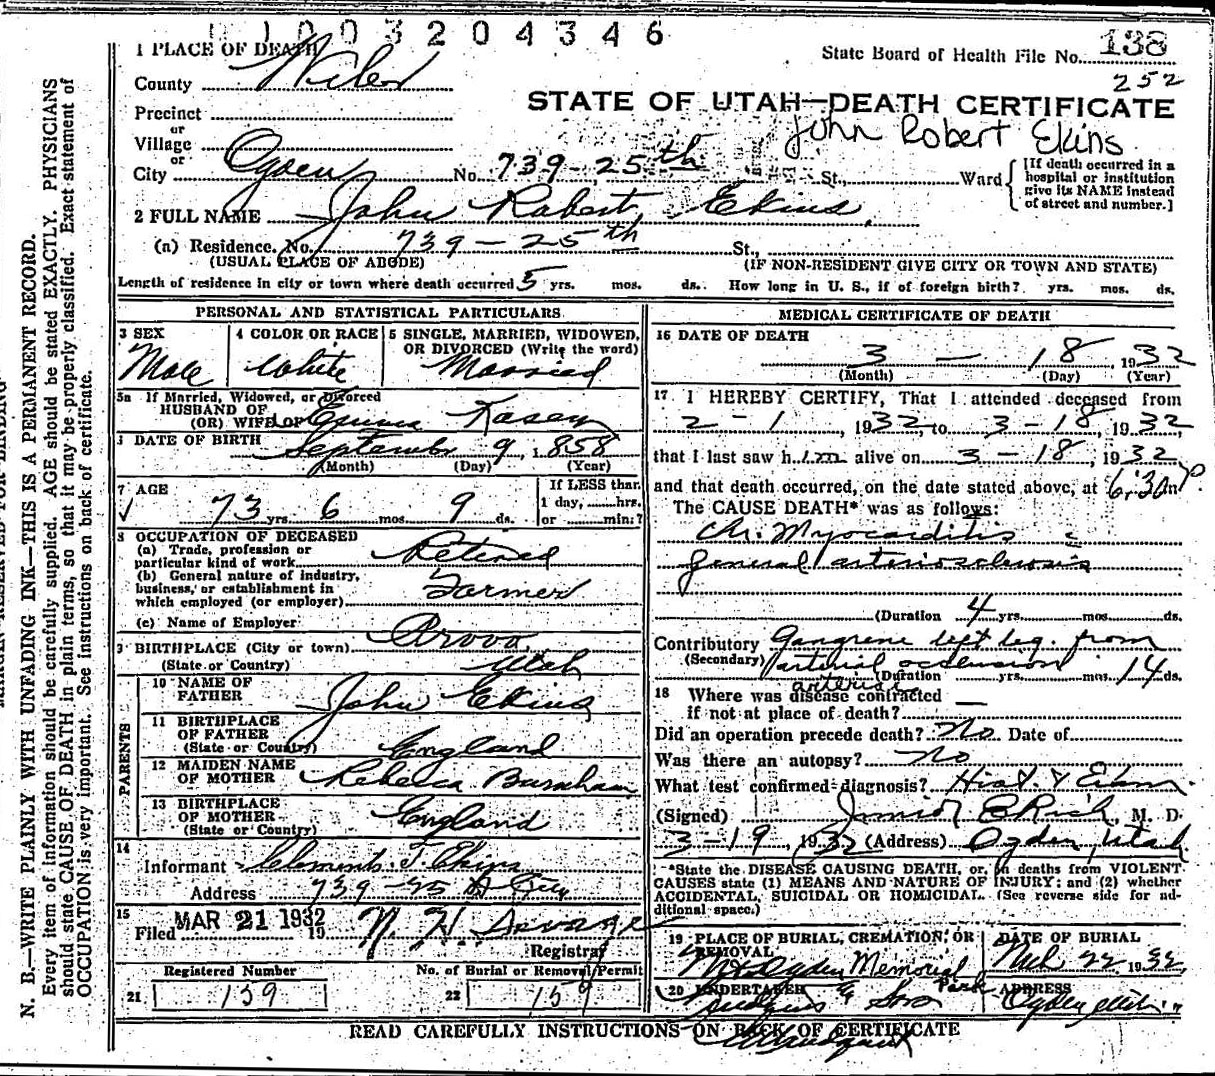 1003204346
1 PLACE OF DEATH
State Board of Health File No. 138
County Weber
252
STATE OF UTAH—DEATH CERTIFICATE
Precinct
John Robert Ekins
or
Village
or
City Ogden No. 739-25th St., Ward
[If death occurred in a
hospital or institution
give its NAME instead
of street and number.]
2 FULL NAME John Robert Ekins
(a) Residence. No. 739-25th St.,
(USUAL PLACE OF ABODE) (IF NON-RESIDENT GIVE CITY OR TOWN AND STATE)
Length of residence in city or town where death occurred 5 yrs. mos. ds. How long in U. S., if of foreign birth? yrs. mos. ds.
PERSONAL AND STATISTICAL PARTICULARS
3 SEX
Male
4 COLOR OR RACE
White
5 SINGLE, MARRIED, WIDOWED,
OR DIVORCED (Write the word)
Married
5a If Married, Widowed, or Divorced
HUSBAND OF
(OR) WIFE OF Emma Kasey
DATE OF BIRTH September 9, 1858
(Month) (Day) (Year)
7 AGE
73 yrs. 6 mos. 9 ds.
If LESS than
1 day, hrs.
or min.?
8 OCCUPATION OF DECEASED
(a) Trade, profession or
particular kind of work Retired
(b) General nature of industry,
business, or establishment in
which employed (or employer) Farmer
(c) Name of Employer
9 BIRTHPLACE (City or town) Provo,
(State or Country) Utah
PARENTS
10 NAME OF
FATHER John Ekins
11 BIRTHPLACE
OF FATHER
(State or Country) England
12 MAIDEN NAME
OF MOTHER Rebecca Burnham
13 BIRTHPLACE
OF MOTHER
(State or Country) England
14
Informant Clements T. Ekins
Address 739-25 St City
15
Filed MAR 21 1932 19
Registrar
Registered Number
21 159
No. of Burial or Removal Permit
22 159
MEDICAL CERTIFICATE OF DEATH
16 DATE OF DEATH
3 - 18, 1932
(Month) (Day) (Year)
17 I HEREBY CERTIFY, That I attended deceased from
2-1, 1932, to 3-18, 1932,
that I last saw him alive on 3-18, 1932
and that death occurred, on the date stated above, at 6:30 P m
The CAUSE DEATH* was as follows:
Chr. Myocarditis
General arteriosclerosis
(Duration 4 yrs. mos. ds.
Contributory Gangrene left leg. from
(Secondary) arterial occlusion
(Duration yrs. mos. 14 ds.
18 Where was disease contracted
if not at place of death?
Did an operation precede death? No Date of
Was there an autopsy? No
What test confirmed diagnosis? Hist & Exam.
(Signed) Junior E Rich, M. D.
3-19, 1932 (Address) Ogden, Utah.
*State the DISEASE CAUSING DEATH, or, in deaths from VIOLENT
CAUSES state (1) MEANS AND NATURE OF INJURY; and (2) whether
ACCIDENTAL, SUICIDAL OR HOMICIDAL. (See reverse side for ad-
ditional space.)
19 PLACE OF BURIAL, CREMATION, OR
REMOVAL
Mt Ogden Memorial Park
DATE OF BURIAL
Mch 22 1932
20 UNDERTAKER
& Sons
ADDRESS
Ogden Utah
READ CAREFULLY INSTRUCTIONS ON BACK OF CERTIFICATE
N. B.—WRITE PLAINLY WITH UNFADING INK—THIS IS A PERMANENT RECORD.
Every item of information should be carefully supplied. AGE should be stated EXACTLY. PHYSICIANS
should state CAUSE OF DEATH in plain terms, so that it may be properly classified. Exact statement of
OCCUPATION is very important. See instructions on back of certificate.